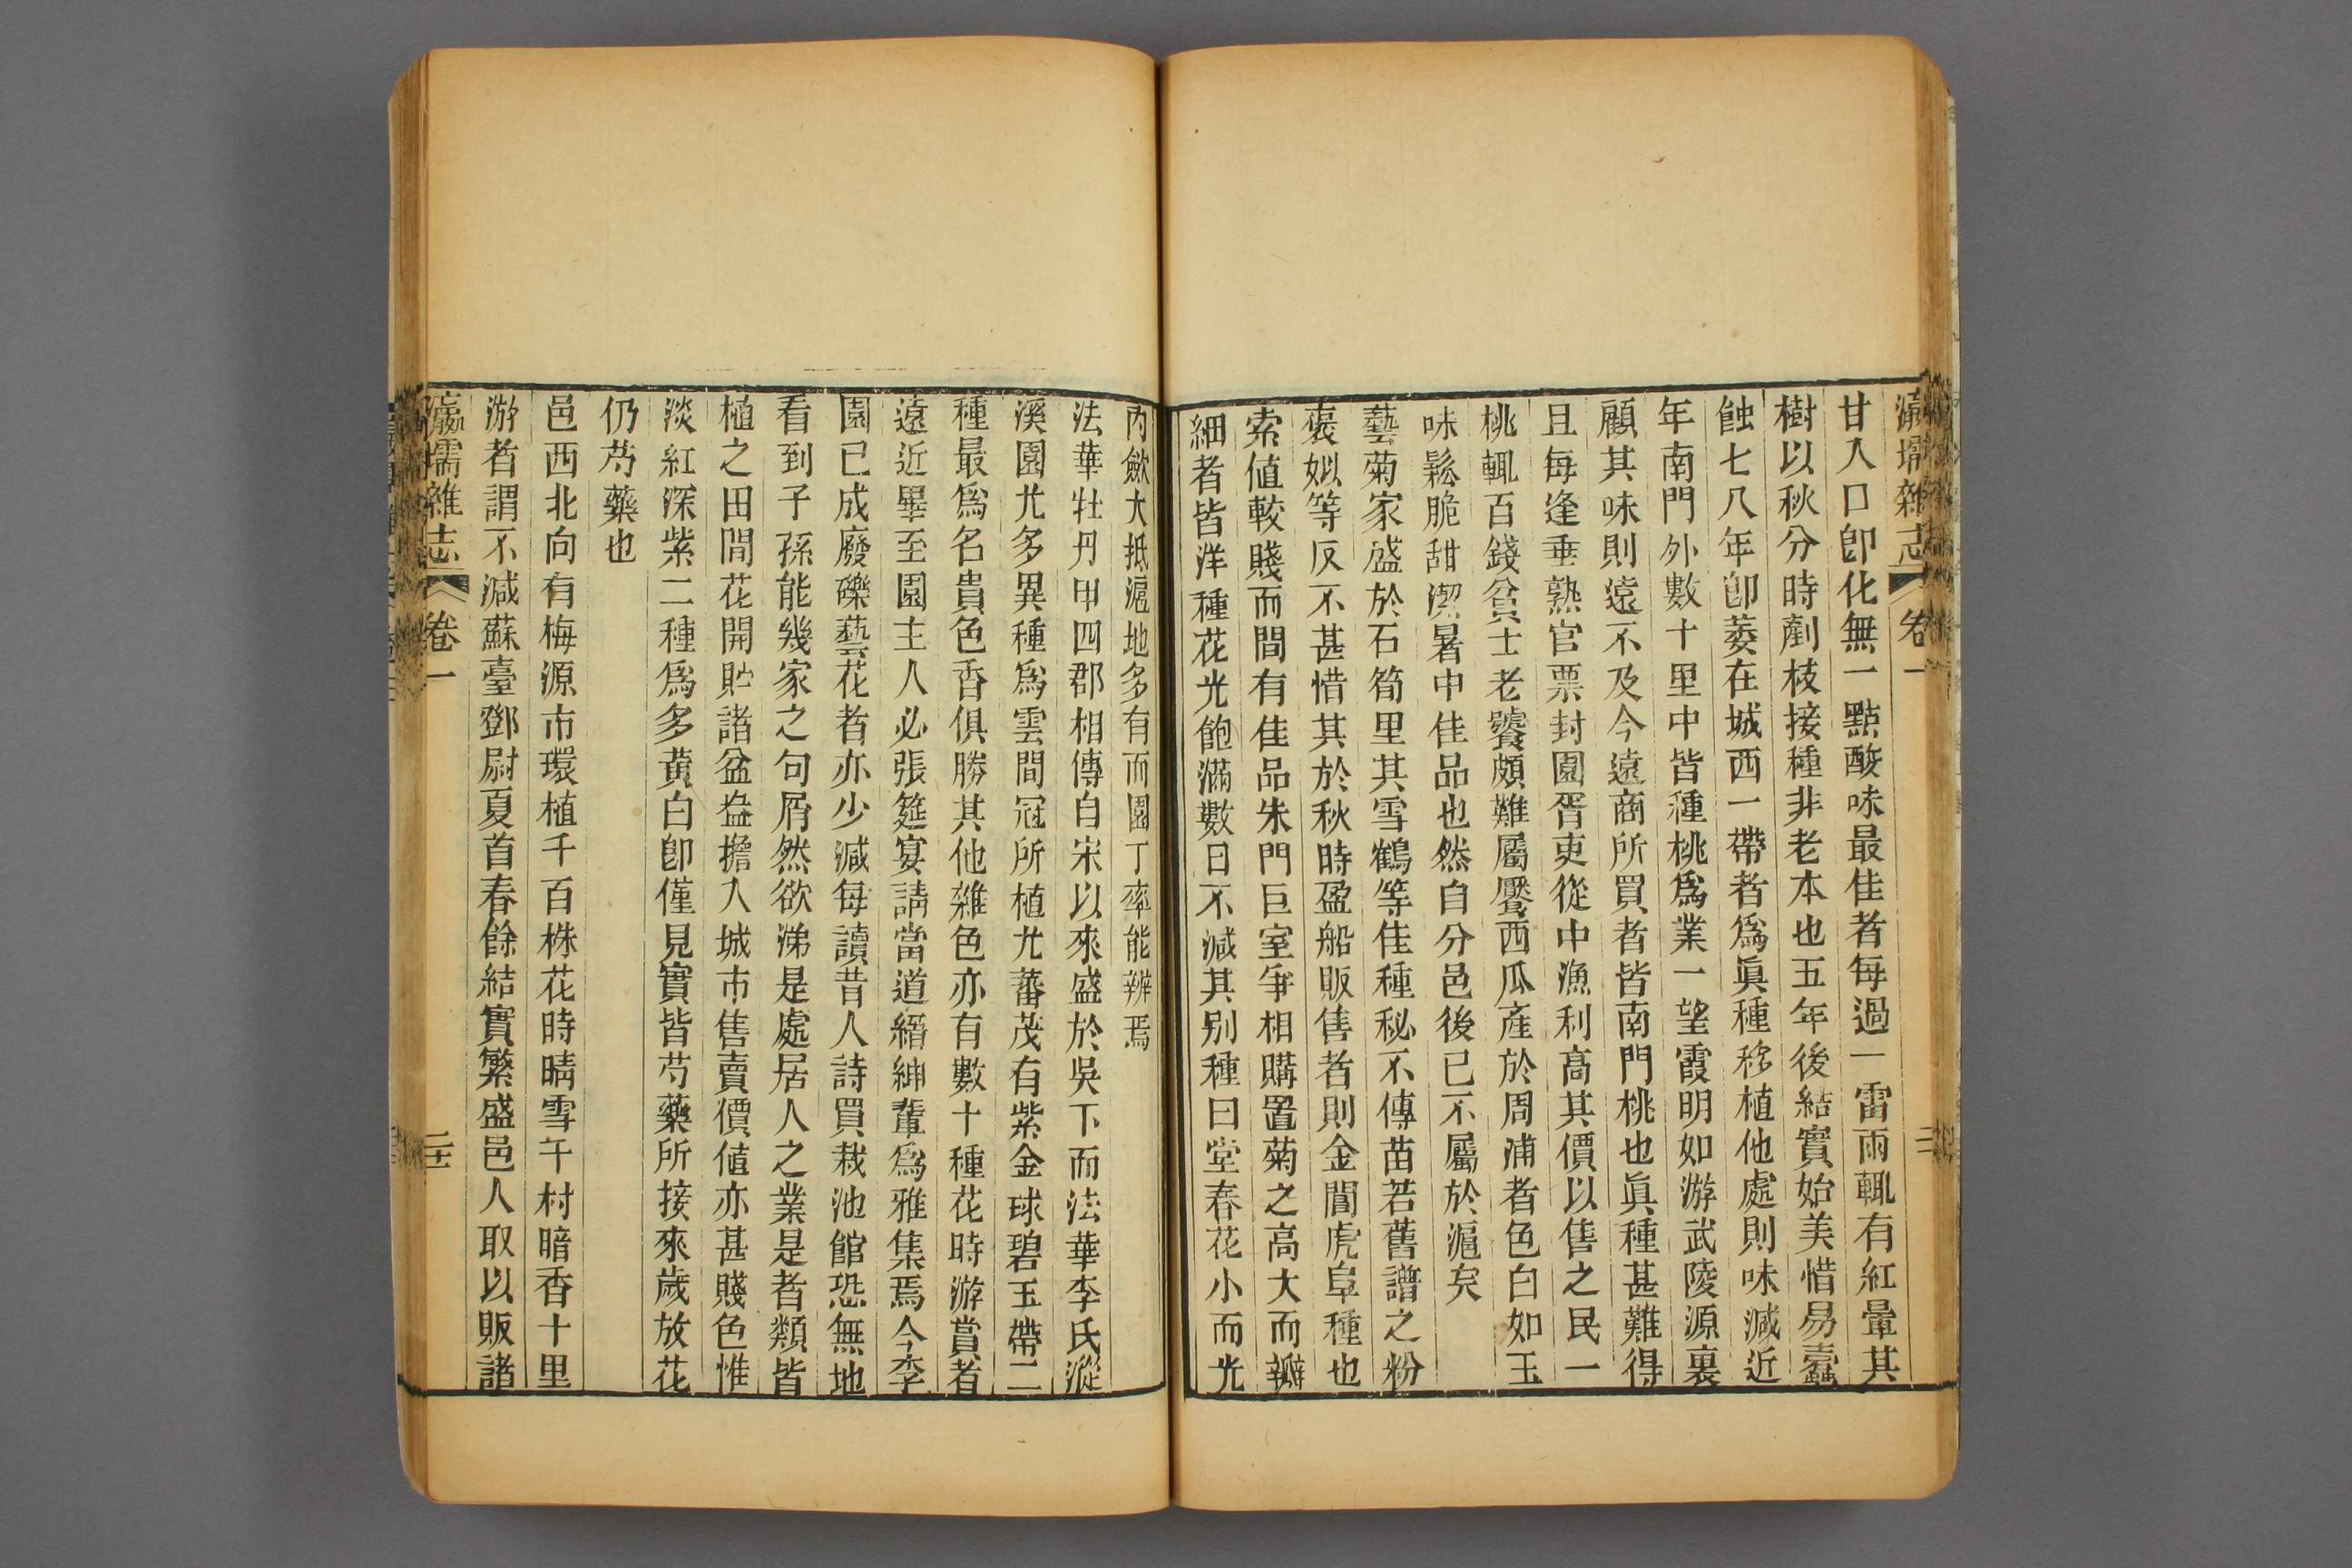 瀛壖雜志 卷一
甘入口卽化無一點酸味最佳者每過一雷雨輒有紅暈其
樹以秋分時劀枝接種非老本也五年後結實始美惜易蠹
蝕七八年卽萎在城西一帶者爲眞種移植他處則味減近
年南門外數十里中皆種桃爲業一望霞明如游武陵源裏
顧其味則遠不及今遠商所買者皆南門桃也眞種甚難得
且每逢垂熟官票封園胥吏從中漁利高其價以售之民一
桃輒百錢貧士老饕頗難屬饜西瓜產於周浦者色白如玉
味鬆脆甜潔暑中佳品也然自分邑後已不屬於滬矣
藝菊家盛於石筍里其雪鶴等佳種秘不傳苗若舊譜之粉
褒姒等反不甚惜其於秋時盈船販售者則金閶虎阜種也
索値較賤而間有佳品朱門巨室爭相購置菊之高大而瓣
細者皆洋種花光飽滿數日不減其别種曰堂春花小而光
內歛大抵滬地多有而園丁率能辨焉
法華牡丹甲四郡相傳自宋以來盛於吳下而法華李氏漎
溪園尤多異種爲雲間冠所植尤蕃茂有紫金球碧玉帶二
種最爲名貴色香俱勝其他雜色亦有數十種花時游賞者
遠近畢至園主人必張筵宴請當道縉紳輩爲雅集焉今李
園已成廢礫藝花者亦少減每讀昔人詩買栽池館恐無地
看到子孫能幾家之句屑然欲涕是處居人之業是者類皆
植之田間花開貯諸盆盎擔入城市售賣價値亦甚賤色惟
淡紅深紫二種爲多黃白卽僅見實皆芍藥所接來歲放花
仍芍藥也
邑西北向有梅源市環植千百株花時晴雪千村暗香十里
游者謂不減蘇臺鄧尉夏首春餘結實繁盛邑人取以販諸
瀛壖雜志 卷一